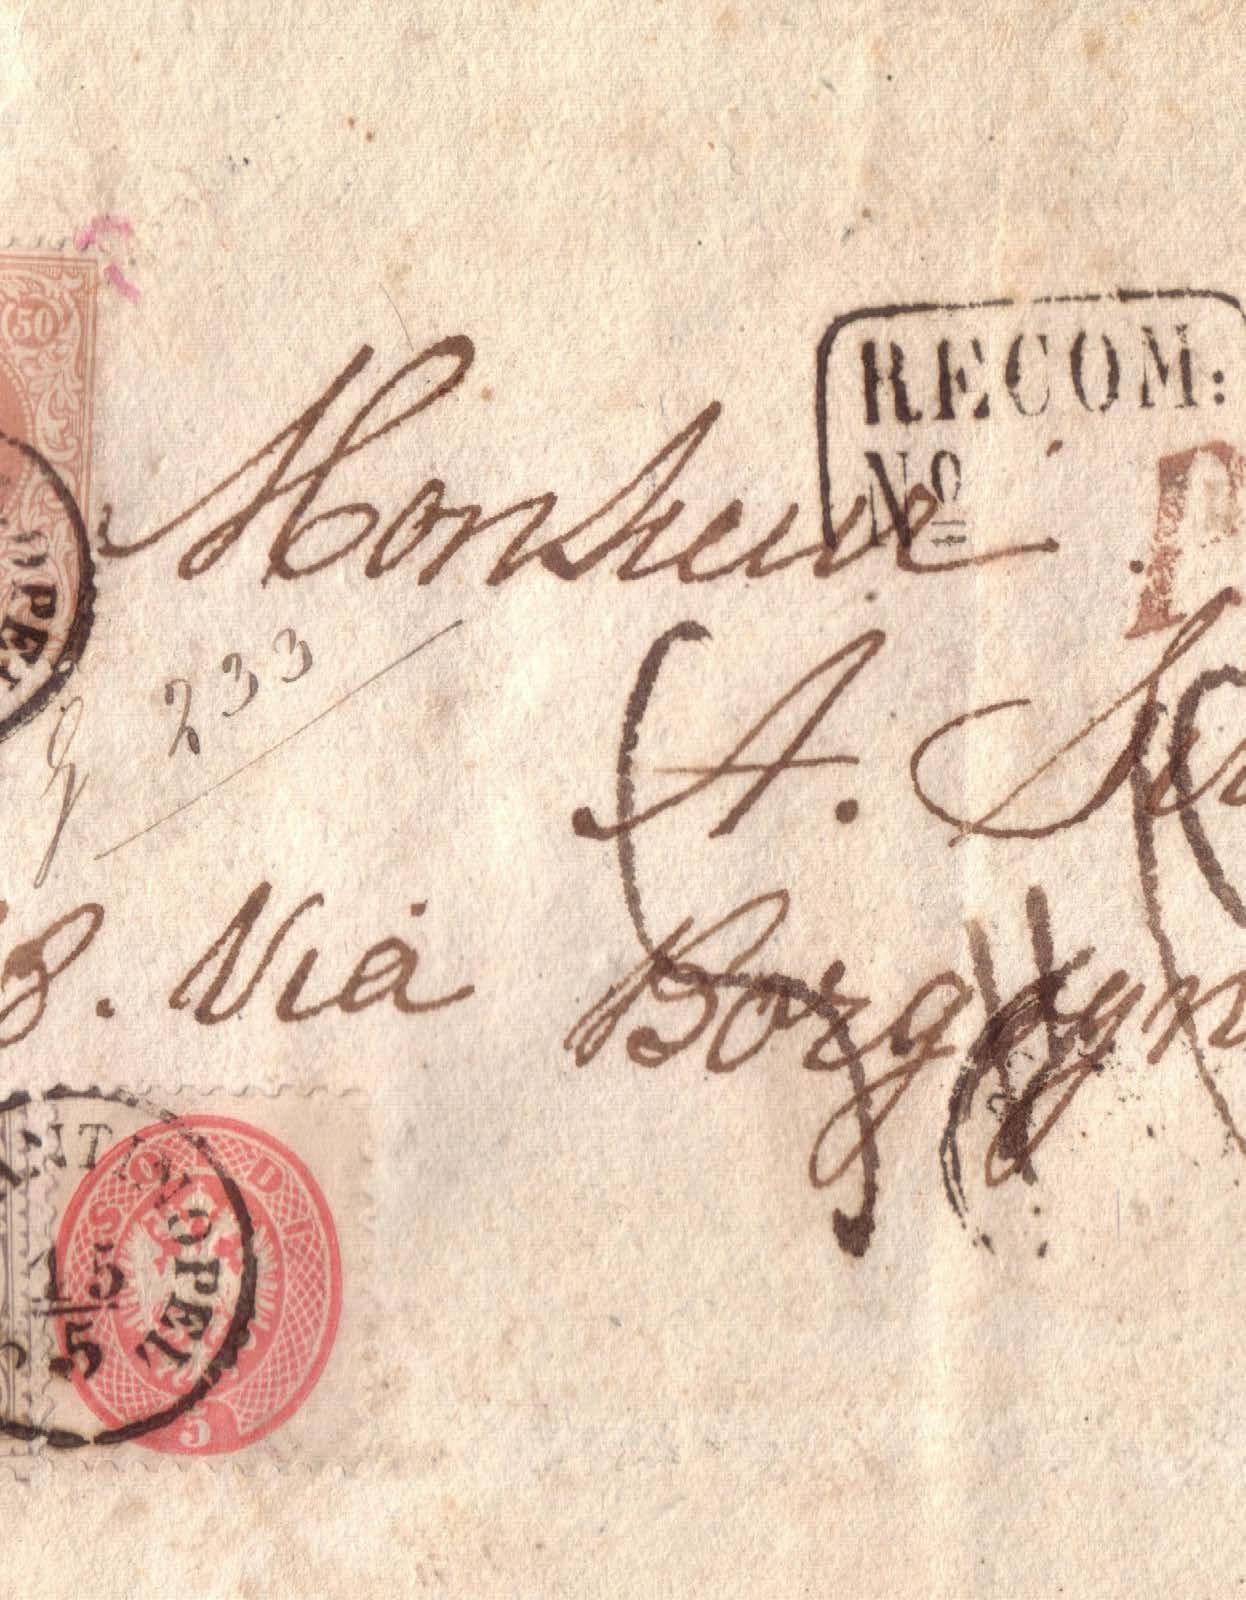 50
RECOM:
Nº
Monsieur
233
A.
8. Via Borgogn
NTINOPEL
15
5
SOLDI
5